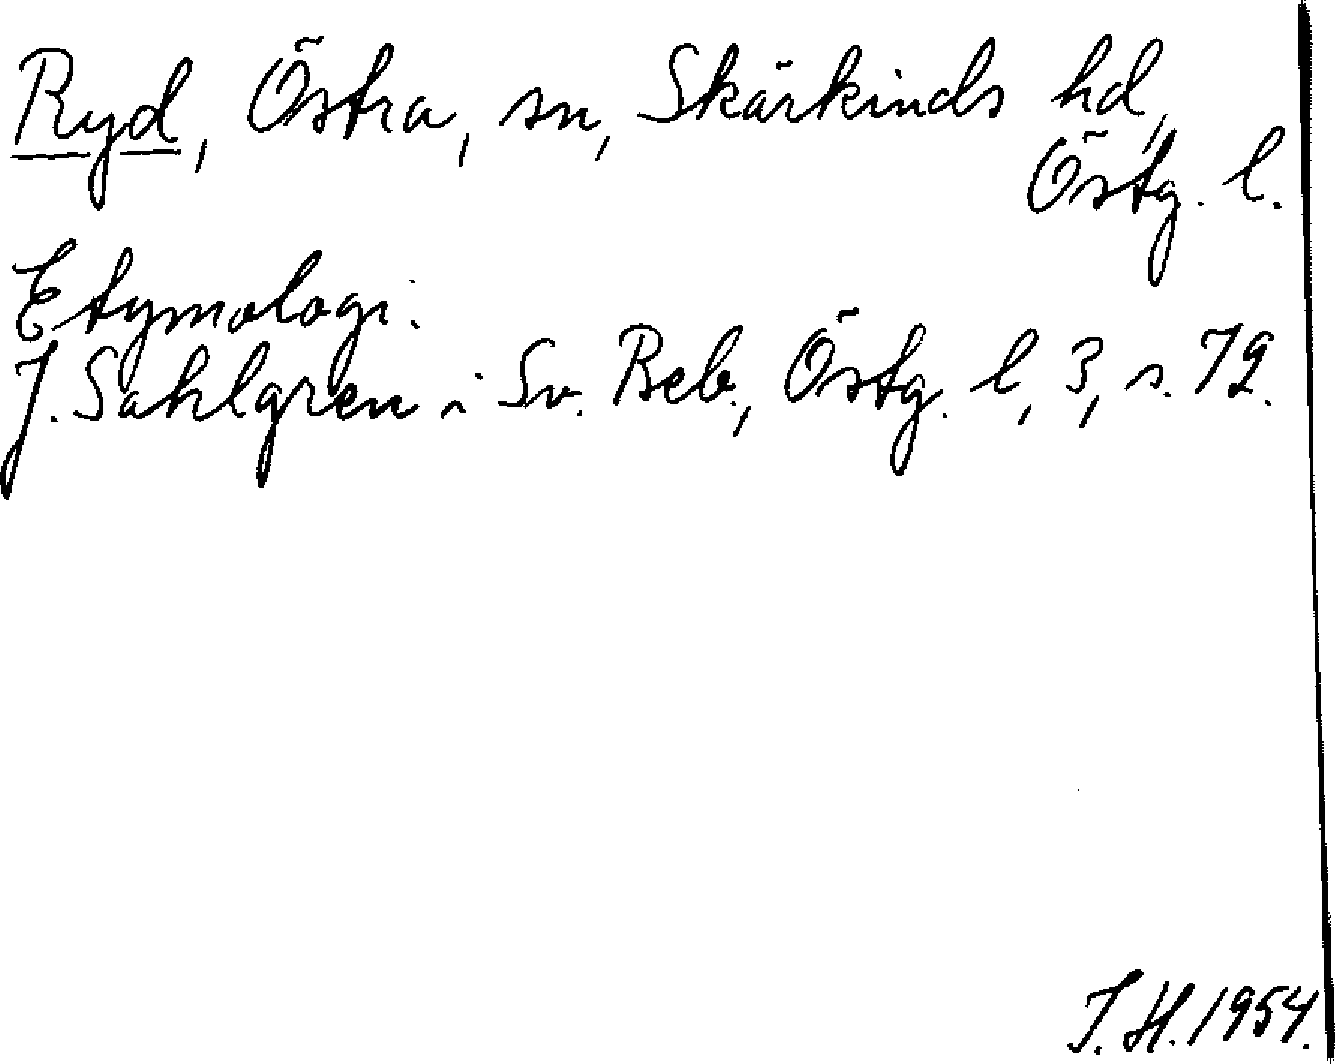 Ryd, Östra, sn, Skärkinds hd,
Östg. l.
Etymologi.
J. Sahlgren i Sv. Beb., Östg. l, 3, s. 72.
J. H. 1954.